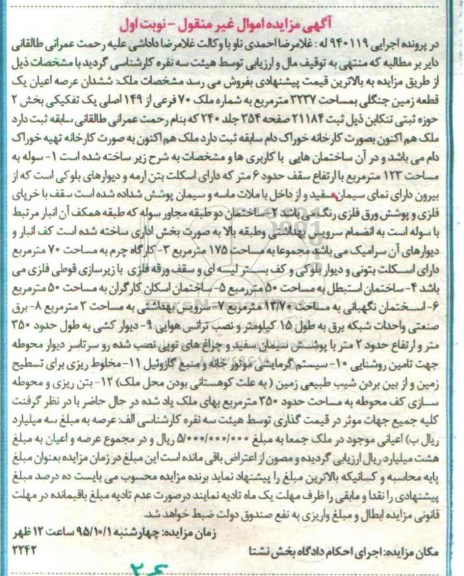 آگهی مزایده اموال غیر منقول - نوبت اول
در پرونده اجرایی ۹۴۰۱۱۹ له : غلامرضا احمدی ناو با وکالت غلامرضا داداشی علیه رحمت عمرانی طالقانی
دایر بر مطالبه که منتهی به توقیف مال و ارزیابی توسط هیئت سه نفره کارشناسی گردید با مشخصات ذیل
از طریق مزایده به بالاترین قیمت پیشنهادی بفروش می رسد مشخصات ملک: ششدان عرصه اعیان یک
قطعه زمین جنگلی بمساحت ۳۲۳۷ مترمربع به شماره ملک ۷۰ فرعی از ۱۴۹ اصلی یک تفکیکی بخش ۲
حوزه ثبتی تنکابن ذیل ثبت ۲۱۱۸۴ صفحه ۳۵۴ جلد ۲۴۰ که بنام رحمت عمرانی طالقانی سابقه ثبت دارد
ملک هم اکنون بصورت کارخانه خوراک دام سابقه ثبت دارد ملک هم اکنون به صورت کارخانه تهیه خوراک
دام می باشد و در آن ساختمان هایی با کاربری ها و مشخصات به شرح زیر ساخته شده است ۱- سوله به
مساحت ۱۲۳ مترمربع با ارتفاع سقف حدود ۶ متر که دارای اسکلت بتن آرمه و دیوارهای بلوکی است که از
بیرون دارای نمای سیمان سفید و از داخل با ملات ماسه و سیمان پوشش شداده شده است سقف با خرپای
فلزی و پوشش ورق فلزی رنگ می باشد ۲- ساختمان دو طبقه مجاور سوله که طبقه همکف آن انبار مرتبط
با سوله است به انضمام سرویس بهداشتی وطبقه بالا به صورت بخش اداری ساخته شده است کف انبار و
دیوارهای آن سرامیک می باشد مجموعا به مساحت ۱۷۵ مترمربع ۳- کارگاه چرم به مساحت ۷۰ مترمربع
دارای اسکلت بتونی و دیوار بلوکی و کف بستر لیسه ای و سقف ورقه فلزی با زیرسازی قوطی فلزی می
باشد ۴- ساختمان استبطل به مساحت ۵۰ متررمبع ۵- ساختمان اسکان کارگران به مساحت ۵۰ مترمربع
۶- ساختمان نگهبانی به مساحت ۱۳/۷۰ مترمربع ۷- سرویس بهداشتی به مساحت ۳ مترمربع ۸- برق
صنعتی واحدات شبکه برق به طول ۱۵ کیلومتر و نصب ترانس هوایی ۹- دیوار کشی به طول حدود ۳۵۰
متر و ارتفاع حدود ۲ متر با پوشش سیمان سفید و چراغ های توپی نصب شده رو سرتاسر دیوار محوطه
جهت تامین روشنایی ۱۰- سیستم گرمایشی موتور خانه و منبع گازوئیل ۱۱- مخلوط ریزی برای تسطیح
زمین و از بین بردن شیب طبیعی زمین ( به علت کوهستانی بودن محل ملک) ۱۲- بتن ریزی و محوطه
سازی کف محوطه به مساحت حدود ۳۵۰ مترمربع بهای ملک یاد شده در حال حاضر با در نظر گرفنت
کلیه جمیع جهات موثر در قیمت گذاری توسط هیئت سه نفره کارشناسی الف: عرصه به مبلغ سه میلیارد
ریال ب) اعیانی موجود در ملک جمعا به مبلغ ۵/۰۰۰/۰۰۰/۰۰۰ ریال و در مجموع عرصه و اعیان به مبلغ
هشت میلیارد ریال ارزیابی گردیده و مصون از اعتراض باقی مانده است این مبلغ در زمان مزایده بعنوان مبلغ
پایه محاسبه و کسانیکه بالاترین مبلغ را پیشنهاد نماید برنده مزایده محسوب می بایست ده درصد مبلغ
پیشنهادی را نقدا و مابقی را ظرف مهلت یک ماه تادیه نمایند درصورت عدم تادیه مبلغ باقیمانده در مهلت
قانونی مزایده ابطال و مبلغ واریزی به نفع صندوق دولت ضبط خواهد شد.
زمان مزایده: چهارشنبه ۹۵/۱۰/۱ ساعت ۱۲ ظهر
مکان مزایده: اجرای احکام دادگاه بخش نشتا
۲۲۴۲
۲۶